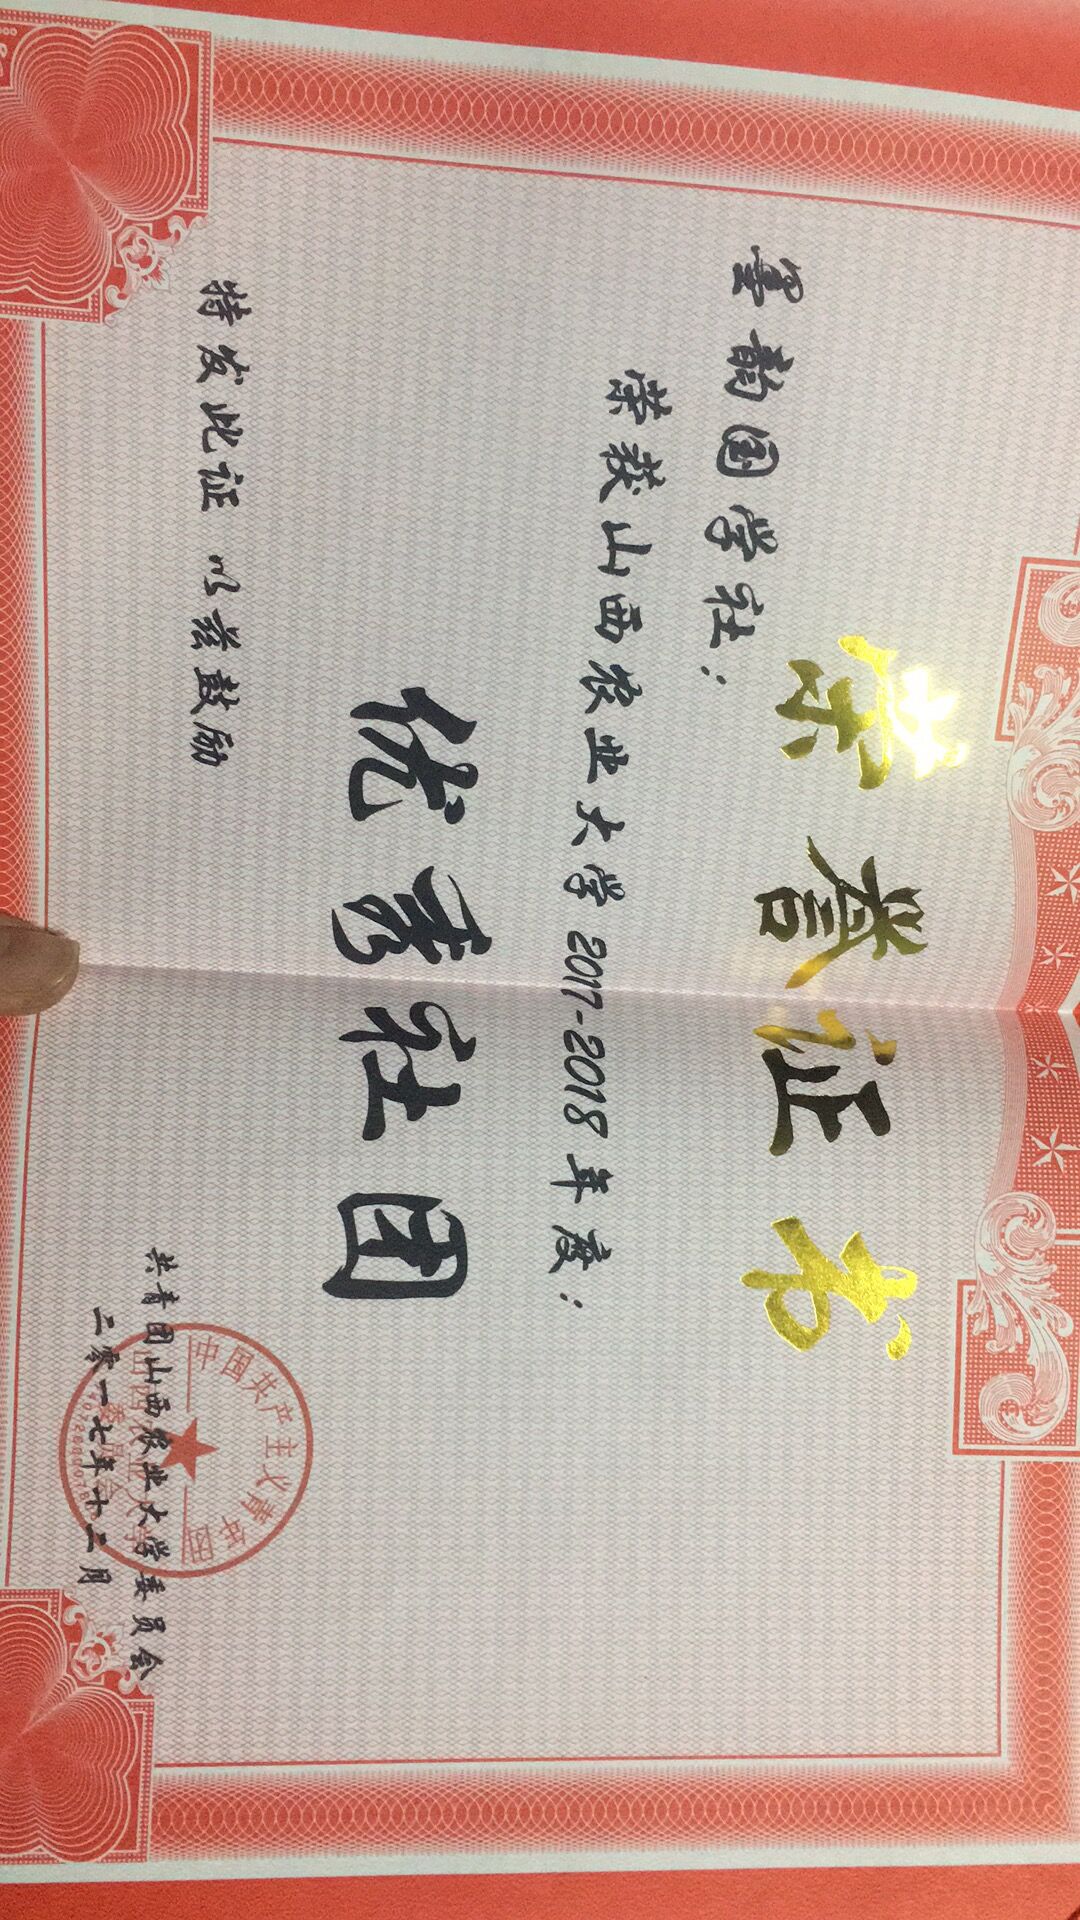 荣誉证书
墨韵国学社：
荣获山西农业大学2017-2018年度：
优秀社团
特发此证 以兹鼓励
共青团山西农业大学委员会
二零一七年十二月
中国共产主义青年团
山西农业大学
委员会